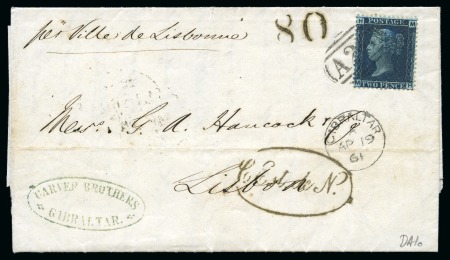 per Ville de Lisbonne
80
POSTAGE
TWO PENCE
A2
Messrs G. A. Hancock
GIBRALTAR
AP 19
61
Lisbon
CARVER BROTHERS
GIBRALTAR.
DA10